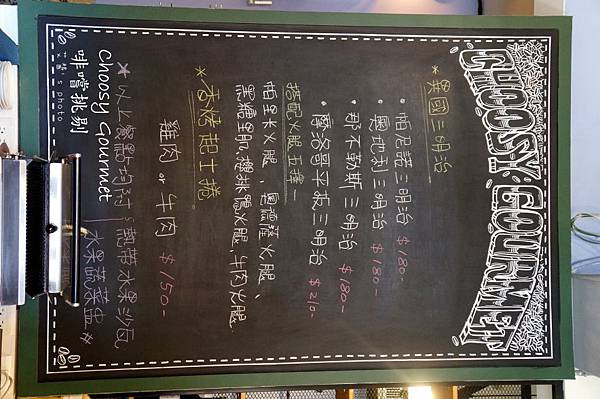 CHOOSY GOURMET
* 異國三明治
• 帕尼諾三明治 $180-
• 奧地利三明治 $180-
• 那不勒斯三明治 $180-
• 摩洛哥平板三明治 $210-
搭配火腿五擇一
帕里米火腿、奧德薩火腿、
黑糖里肌、燻排隱火腿、牛肉火腿
* 香烤起士捲
雞肉 or 牛肉 $150-
* 以上餐點均附:鮑芬水果沙瓦
水果蔬菜盅 *
Choosy Gourmet
啡嚐挑剔
's photo